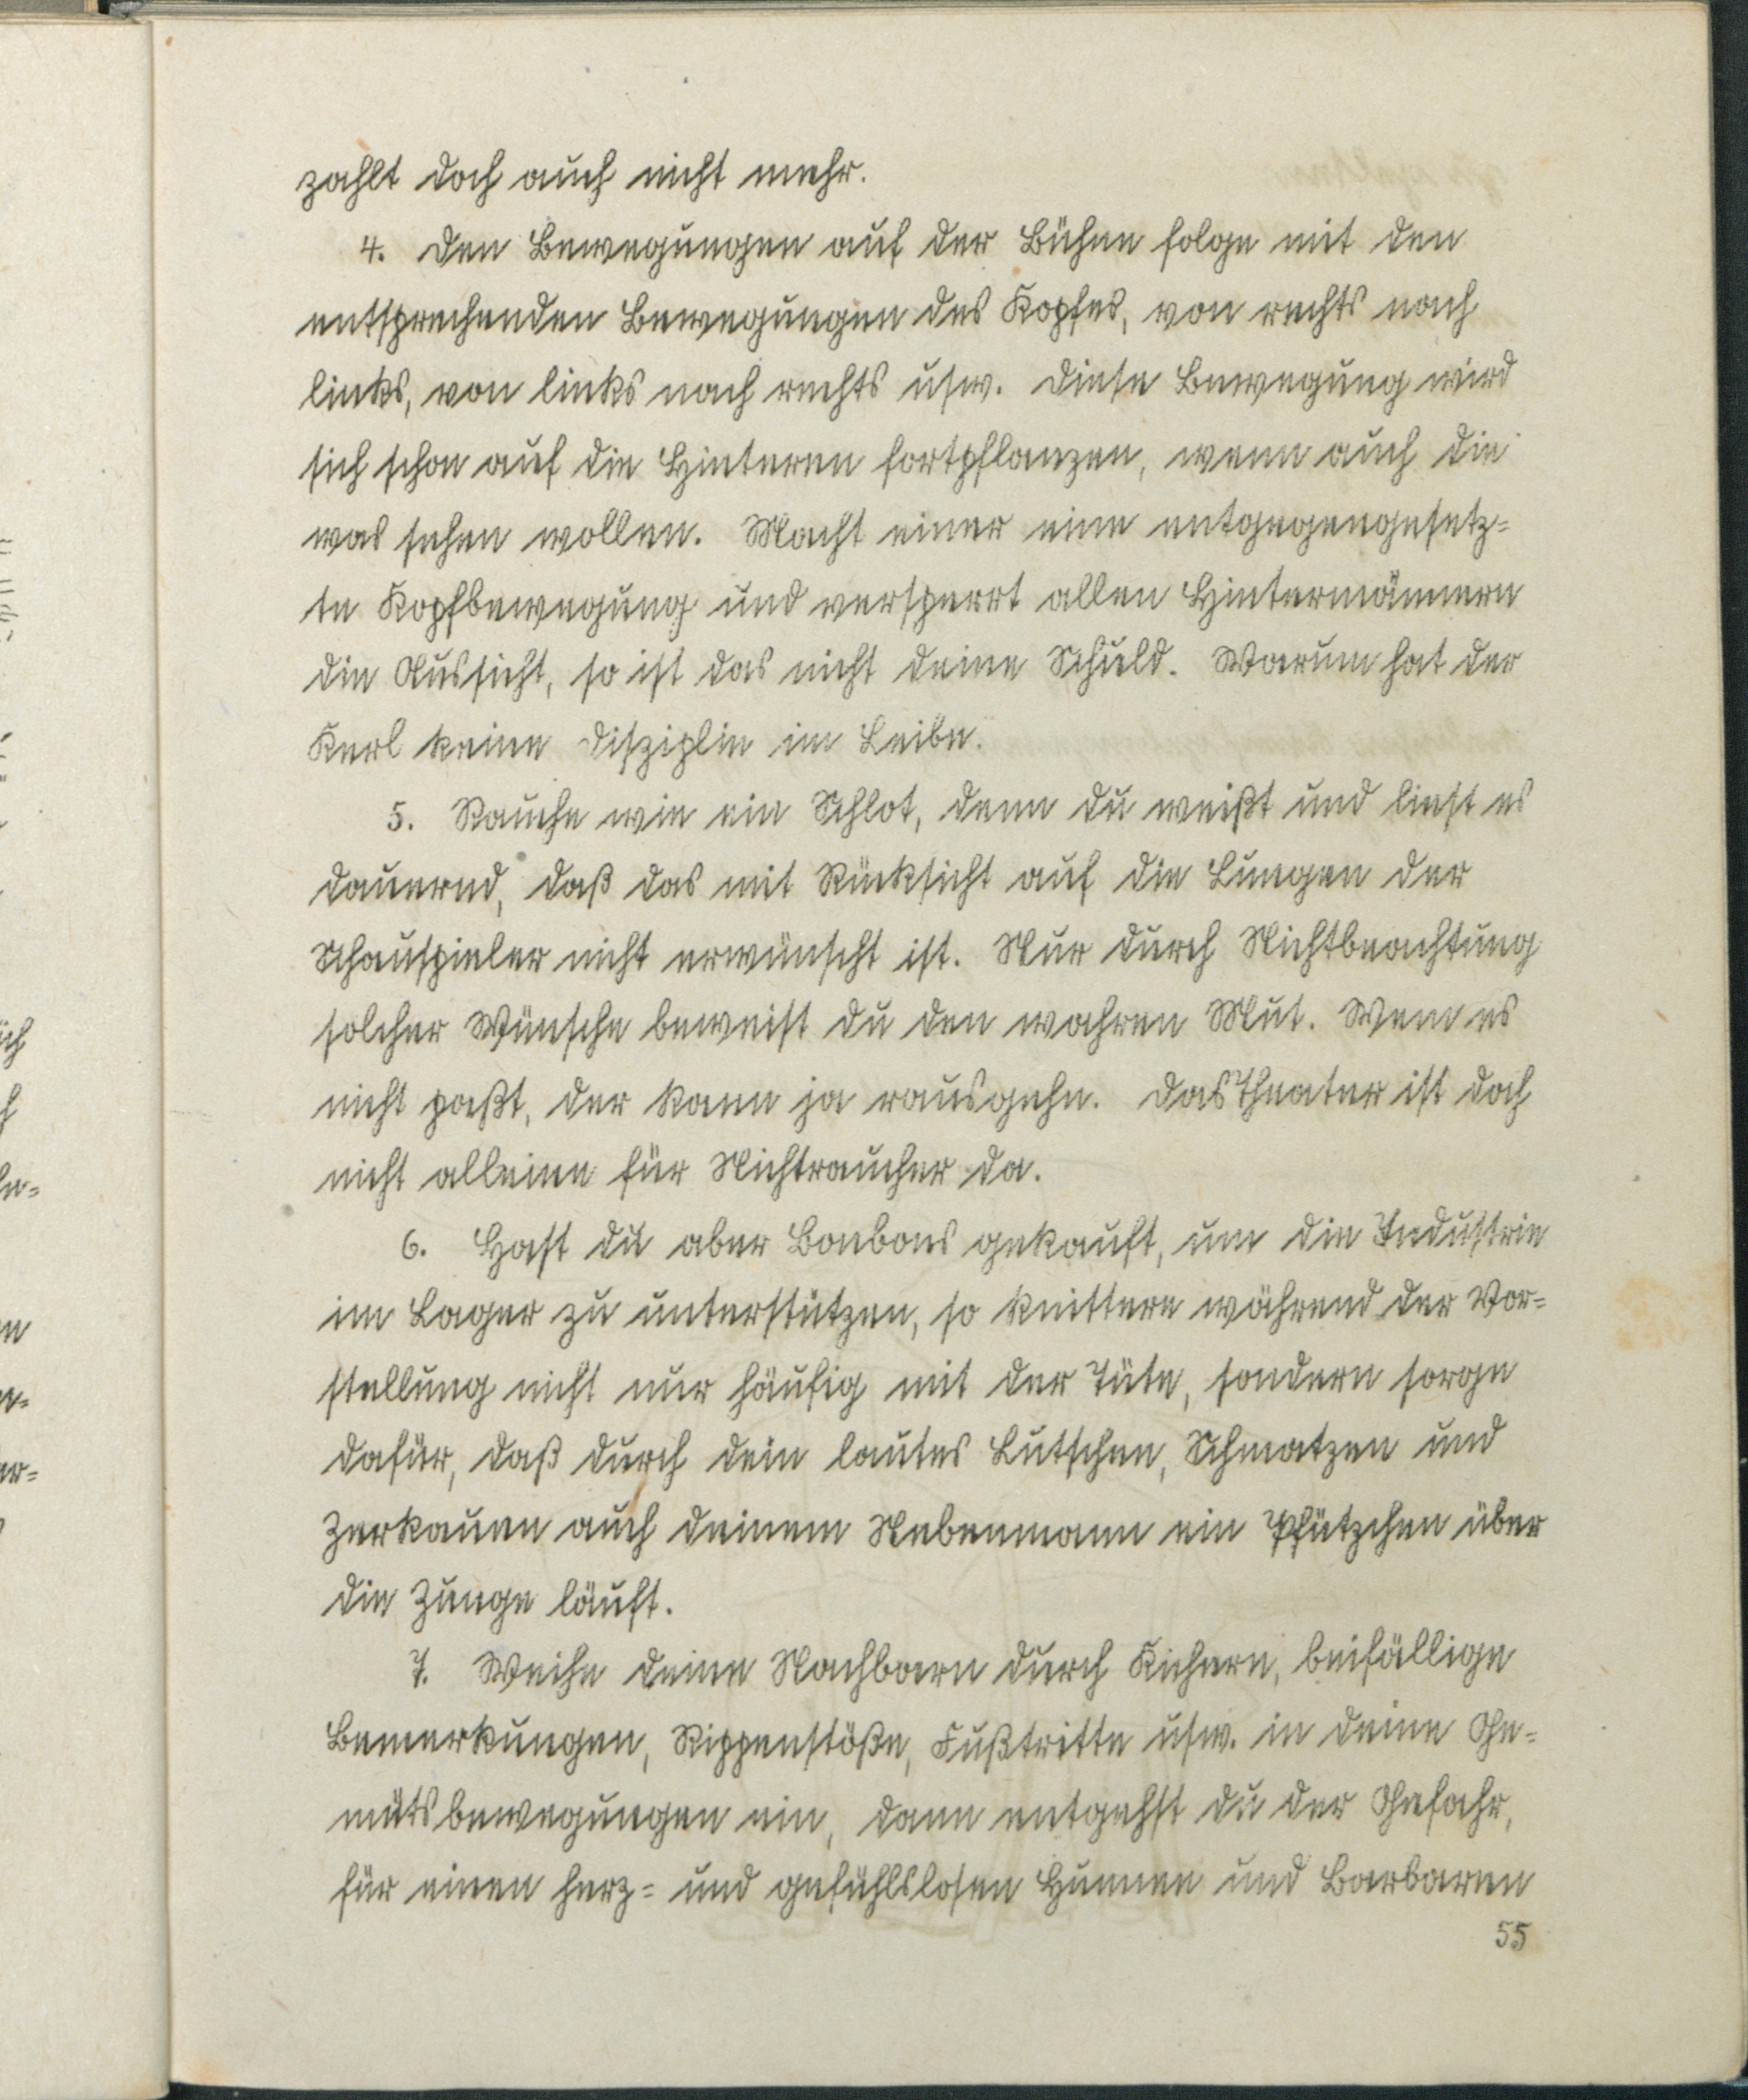 zahlt doch auch nicht mehr.
4. Den Bewegungen auf der Bühne folge mit den
entsprechenden Bewegungen des Kopfes, von rechts nach
links, von links nach rechts usw. Diese Bewegung wird
sich schon auf die Hinteren fortpflanzen, wenn auch die
was sehen wollen. Macht einer eine entgegengesetz=
te Kopfbewegung und versperrt allen Hintermännern
die Aussicht, so ist das nicht deine Schuld. Warum hat der
Kerl keine Disziplin im Leibe.
5. Rauche wie ein Schlot, denn du weißt und liest es
dauernd, daß das mit Rücksicht auf die Lungen der
Schauspieler nicht erwünscht ist. Nur durch Nichtbeachtung
solcher Wünsche beweist du den wahren Mut. Wem es
nicht paßt, der kann ja rausgehn. Das Theater ist doch
nicht alleine für Nichtraucher da.
6. Hast du aber Bonbons gekauft, um die Industrie
im Lager zu unterstützen, so knittere während der Vor=
stellung nicht nur häufig mit der Tüte, sondern sorge
dafür, daß durch dein lautes Lutschen, Schmatzen und
Zerkauen auch deinem Nebenmann ein Pfützchen über
die Zunge läuft.
7. Weihe deine Nachbarn durch Kichern, beifällige
Bemerkungen, Rippenstöße, Fußtritte usw. in deine Ge=
mütsbewegungen ein, dann entgehst du der Gefahr,
für einen herz= und gefühlslosen Hunnen und Barbaren
55